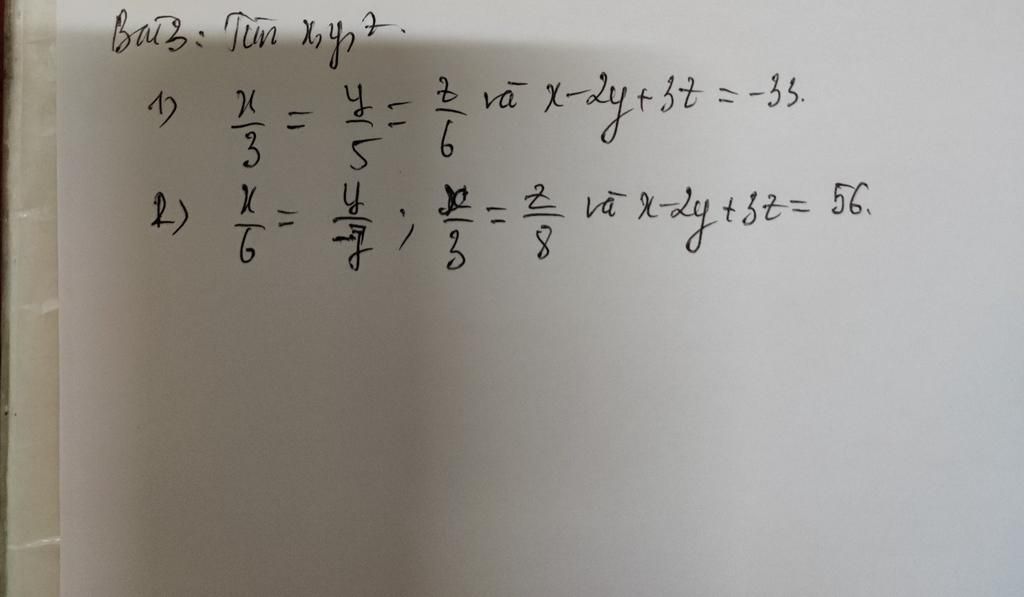 Bài 3: Tìm x, y, z.
1) x/3 = y/5 = z/6 và x - 2y + 3z = -33.
2) x/6 = y/-7 ; x/3 = z/8 và x - 2y + 3z = 56.